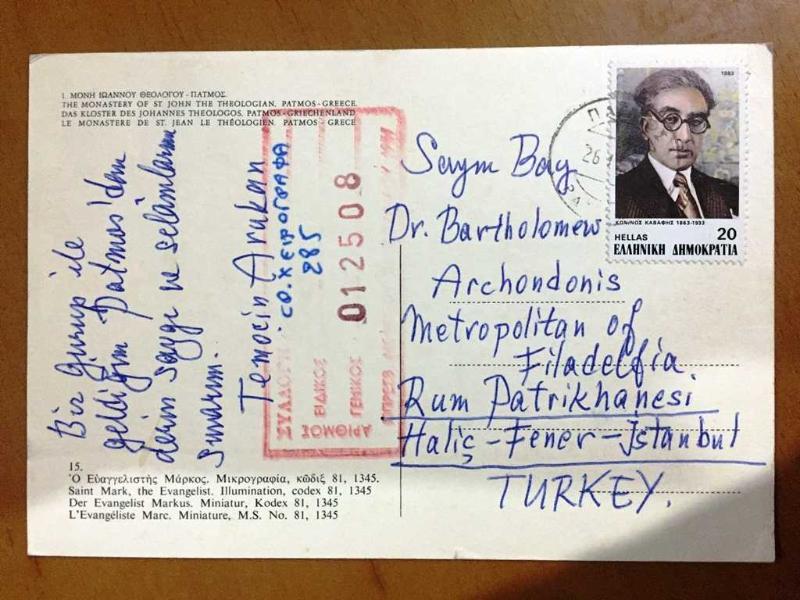 1. ΜΟΝΗ ΙΩΑΝΝΟΥ ΘΕΟΛΟΓΟΥ - ΠΑΤΜΟΣ
THE MONASTERY OF ST JOHN THE THEOLOGIAN, PATMOS - GREECE
DAS KLOSTER DES JOHANNES THEOLOGOS, PATMOS - GRIECHENLAND
LE MONASTERE DE ST. JEAN LE THÉOLOGIEN, PATMOS - GRECE
Bir gurup ile
geldiğim Patmos'dan
derin saygı ve selâmlarımı
sunarım.
Temoçin Arukan
ΣΥΛΛΟΓΗ
ΧΕΙΡΟΓΡΑΦΑ
ΑΡΙΘΜΟΣ
ΕΙΔΙΚΟΣ
285
ΓΕΝΙΚΟΣ
012508
15.
Ὁ Εὐαγγελιστής Μάρκος. Μικρογραφία, κῶδιξ 81, 1345.
Saint Mark, the Evangelist. Illumination, codex 81, 1345
Der Evangelist Markus. Miniatur, Kodex 81, 1345
L'Evangéliste Marc. Miniature, M.S. No. 81, 1345
1983
ΚΩΝ/ΝΟΣ ΚΑΒΑΦΗΣ 1863-1933
HELLAS 20
ΕΛΛΗΝΙΚΗ ΔΗΜΟΚΡΑΤΙΑ
26
Sayın Bay
Dr. Bartholomew
Archondonis
Metropolitan of
Filadelfia
Rum Patrikhanesi
Haliç-Fener-Istanbul
TURKEY.